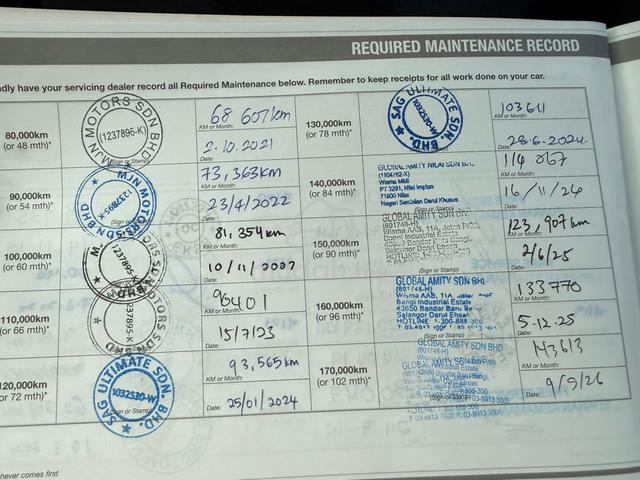 REQUIRED MAINTENANCE RECORD
dly have your servicing dealer record all Required Maintenance below. Remember to keep receipts for all work done on your car.
80,000km
(or 48 mth)*
MJN MOTORS SDN BHD
(1237895-K)
(Sign or Stamp)
68 607km
KM or Month:
2.10.2021
Date:
90,000km
(or 54 mth)*
MJN MOTORS SDN BHD
1237895-K
(Sign or
73,363km
KM or Month:
23/4/2022
Date:
100,000km
(or 60 mth)*
81,354km
KM or Month:
10/11/2022
Date:
110,000km
or 66 mth)*
KM or Month:
15/7/23
Date:
120,000km
r 72 mth)*
SAG ULTIMATE SDN. BHD.
1032530-W
93,565km
KM or Month:
25/01/2024
Date:
130,000km
(or 78 mth)*
SAG ULTIMATE SDN. BHD.
1032530-W
103611
KM or Month:
28.6.2024
Date:
140,000km
(or 84 mth)*
GLOBAL AMITY NILAI SDN BHD
(1104762-X)
Wisma MMI
PT 3291, Nilai Impian
71800 Nilai
Negeri Sembilan Darul Khusus
(Sign or Stamp)
114 067
KM or Month:
16/11/24
Date:
150,000km
(or 90 mth)*
GLOBAL AMITY SDN BHD
(601748-H)
Wisma AAB, 11A, Jalan
Bangi Industrial Estate
43650 Bandar Baru Bangi,
Selangor Darul Ehsan
(Sign or Stamp)
123,907km
KM or Month:
2/6/25
Date:
160,000km
(or 96 mth)*
GLOBAL AMITY SDN BHD
(601748-H)
Wisma AAB, 11A, Jalan
Bangi Industrial Estate
43650 Bandar Baru
Selangor Darul Ehsan
HOTLINE 1-300-888-300
133770
KM or Month:
5.12.25
Date:
170,000km
(or 102 mth)*
GLOBAL AMITY SDN BHD
(601748-H)
143613
KM or Month:
Date:
never comes first